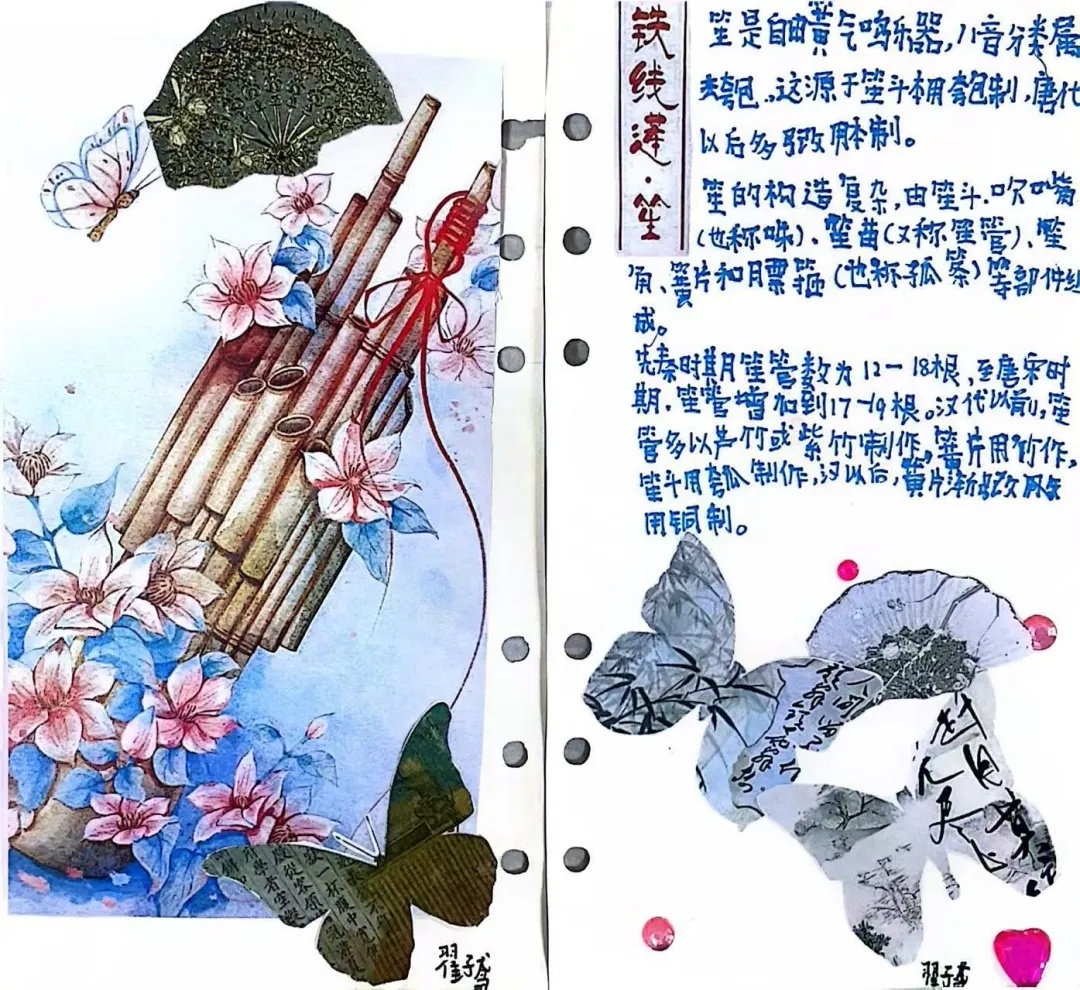 铁线莲·笙
笙是自由簧气鸣乐器,八音分类属
匏,这源于笙斗本用匏制,唐代
以后多改用木制。
笙的构造复杂,由笙斗、吹嘴
(也称咮)、笙苗(又称笙管)、笙
角、簧片和腰箍(也称孤篆)等部件组
成。
先秦时期笙管数为12-18根,至唐宋时
期,笙管增加到17-19根。汉代以前,笙
管多以芦竹或紫竹制作,簧片用竹作,
笙斗用匏瓜制作,汉以后,簧片渐改
用铜制。
一杯
中